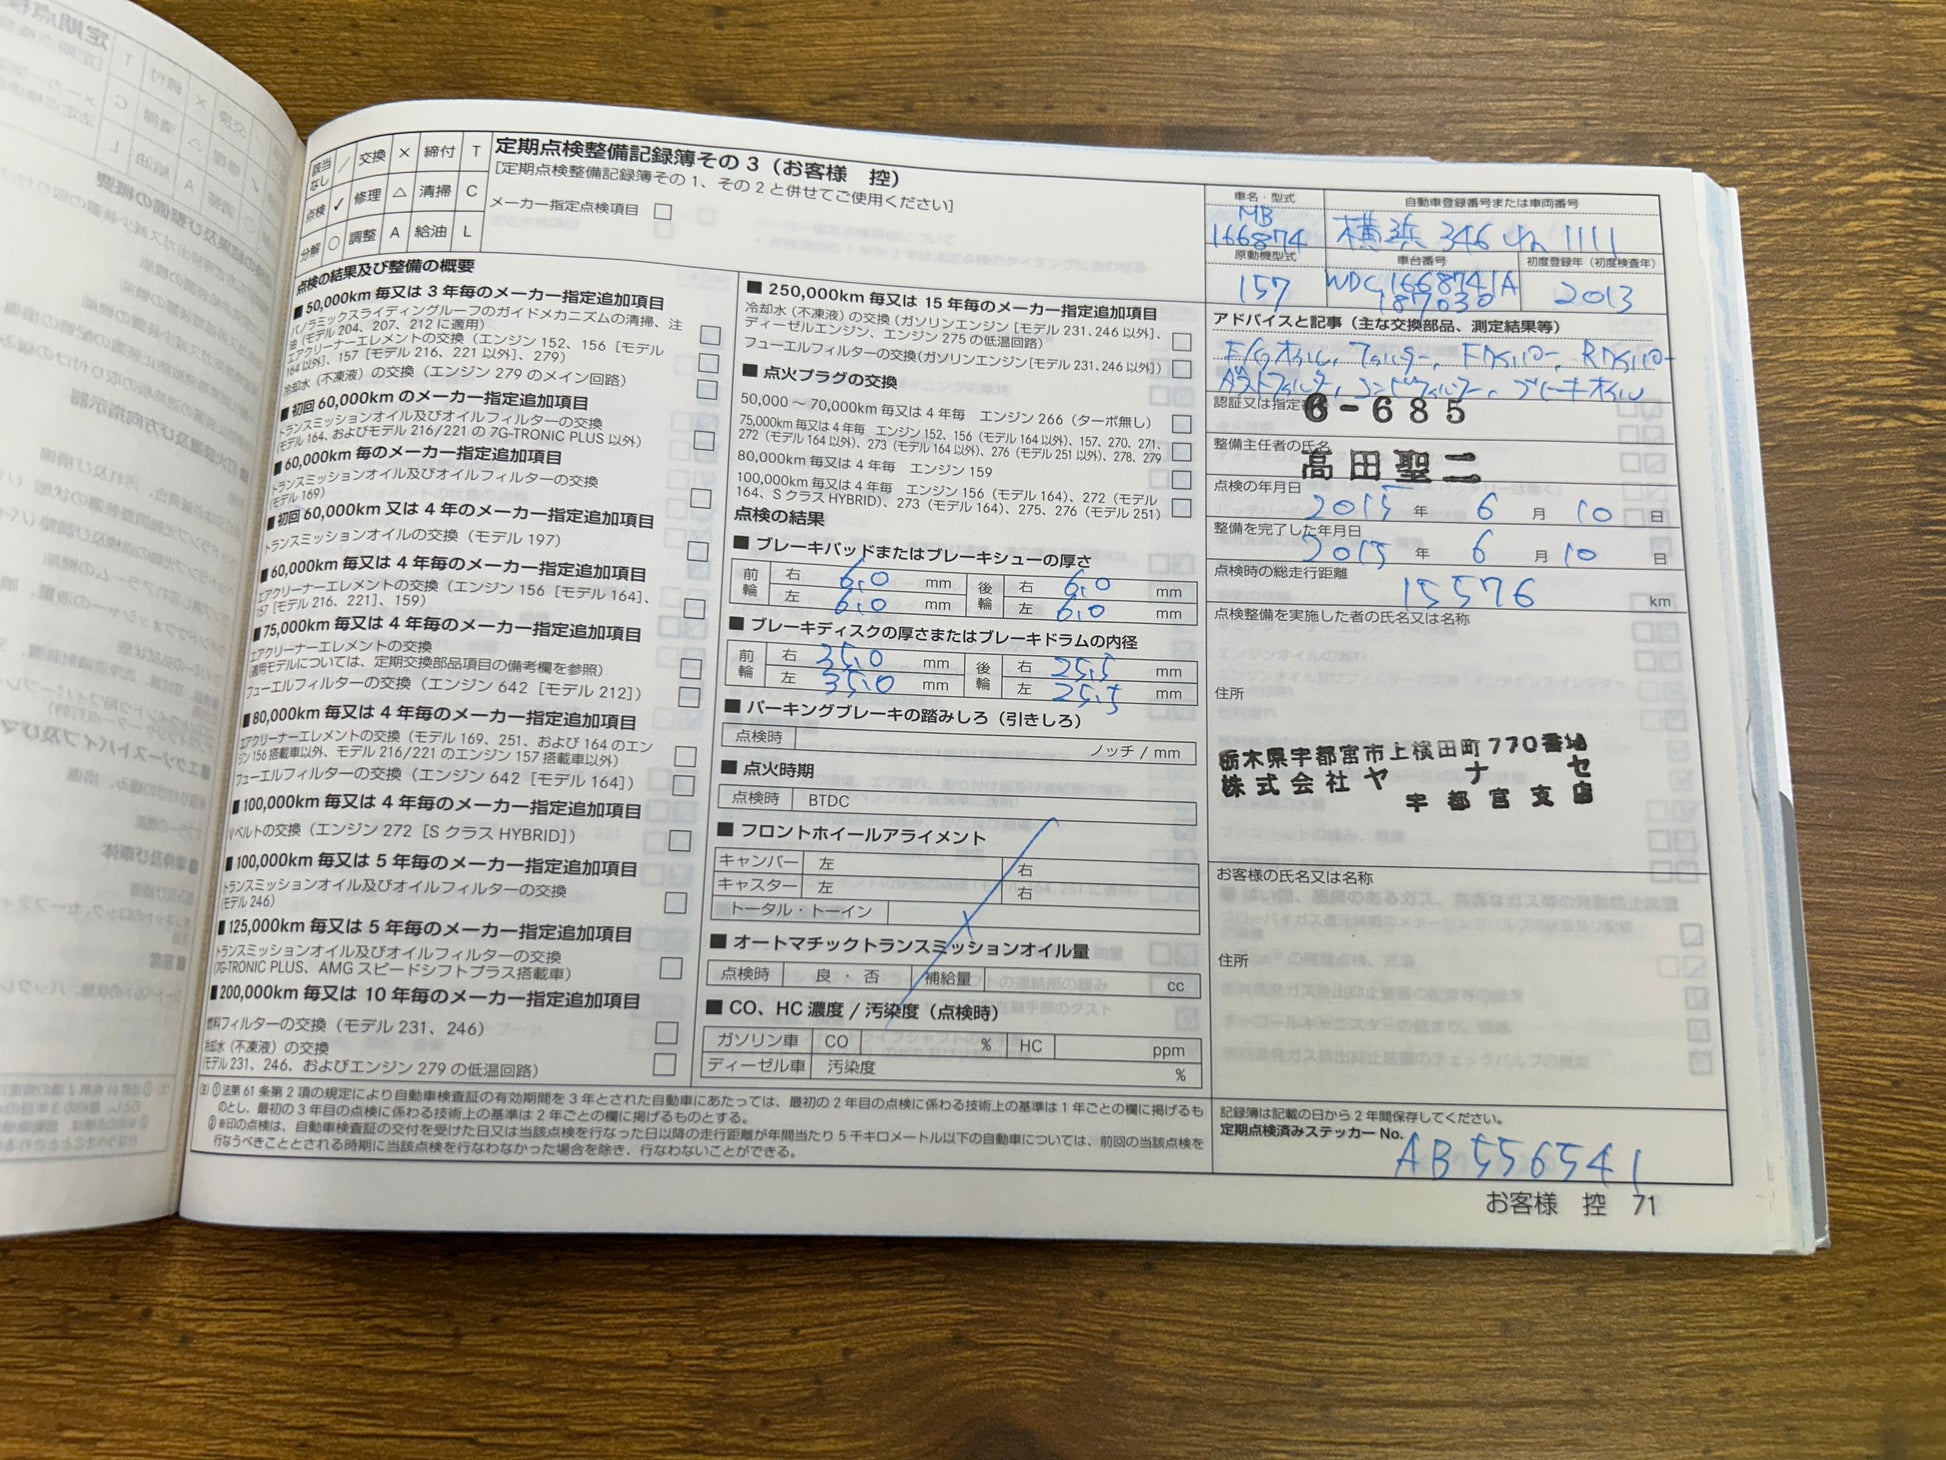 該当なし ／ 交換 × 締付 T
点検 ✓ 修理 △ 清掃 C
分解 ○ 調整 A 給油 L
定期点検整備記録簿その3（お客様 控）
[定期点検整備記録簿その1、その2と併せてご使用ください]
メーカー指定点検項目 □
点検の結果及び整備の概要
■ 50,000km 毎又は 3 年毎のメーカー指定追加項目
パノラミックスライディングルーフのガイドメカニズムの清掃、注
油（モデル 204、207、212 に適用）
エアクリーナーエレメントの交換（エンジン 152、156［モデル
164 以外］、157［モデル 216、221 以外］、279）
冷却水（不凍液）の交換（エンジン 279 のメイン回路）
■ 初回 60,000km のメーカー指定追加項目
トランスミッションオイル及びオイルフィルターの交換
（モデル 164、およびモデル 216/221 の 7G-TRONIC PLUS 以外）
■ 60,000km 毎のメーカー指定追加項目
トランスミッションオイル及びオイルフィルターの交換
（モデル 169）
■ 初回 60,000km 又は 4 年のメーカー指定追加項目
トランスミッションオイルの交換（モデル 197）
■ 60,000km 毎又は 4 年毎のメーカー指定追加項目
エアクリーナーエレメントの交換（エンジン 156［モデル 164］、
157［モデル 216、221］、159）
■ 75,000km 毎又は 4 年毎のメーカー指定追加項目
エアクリーナーエレメントの交換
（適用モデルについては、定期交換部品項目の備考欄を参照）
フューエルフィルターの交換（エンジン 642［モデル 212］）
■ 80,000km 毎又は 4 年毎のメーカー指定追加項目
エアクリーナーエレメントの交換（モデル 169、251、および 164 のエン
ジン 156 搭載車以外、モデル 216/221 のエンジン 157 搭載車以外）
フューエルフィルターの交換（エンジン 642［モデル 164］）
■ 100,000km 毎又は 4 年毎のメーカー指定追加項目
Vベルトの交換（エンジン 272［S クラス HYBRID］）
■ 100,000km 毎又は 5 年毎のメーカー指定追加項目
トランスミッションオイル及びオイルフィルターの交換
（モデル 246）
■ 125,000km 毎又は 5 年毎のメーカー指定追加項目
トランスミッションオイル及びオイルフィルターの交換
（7G-TRONIC PLUS、AMG スピードシフトプラス搭載車）
■ 200,000km 毎又は 10 年毎のメーカー指定追加項目
燃料フィルターの交換（モデル 231、246）
冷却水（不凍液）の交換
（モデル 231、246、およびエンジン 279 の低温回路）
■ 250,000km 毎又は 15 年毎のメーカー指定追加項目
冷却水（不凍液）の交換（ガソリンエンジン［モデル 231、246 以外］、
ディーゼルエンジン、エンジン 275 の低温回路）
フューエルフィルターの交換（ガソリンエンジン［モデル 231、246 以外］）
■ 点火プラグの交換
50,000 ～ 70,000km 毎又は 4 年毎　エンジン 266（ターボ無し）
75,000km 毎又は 4 年毎　エンジン 152、156（モデル 164 以外）、157、270、271、
272（モデル 164 以外）、273（モデル 164 以外）、276（モデル 251 以外）、278、279
80,000km 毎又は 4 年毎　エンジン 159
100,000km 毎又は 4 年毎　エンジン 156（モデル 164）、272（モデル
164、S クラス HYBRID）、273（モデル 164）、275、276（モデル 251）
点検の結果
■ ブレーキパッドまたはブレーキシューの厚さ
前輪 右 6.0 mm 後輪 右 6.0 mm
左 6.0 mm 左 6.0 mm
■ ブレーキディスクの厚さまたはブレーキドラムの内径
前輪 右 35.0 mm 後輪 右 25.5 mm
左 35.0 mm 左 25.5 mm
■ パーキングブレーキの踏みしろ（引きしろ）
点検時 ノッチ / mm
■ 点火時期
点検時 BTDC
■ フロントホイールアライメント
キャンバー 左 右
キャスター 左 右
トータル・トーイン
■ オートマチックトランスミッションオイル量
点検時 良・否 補給量 cc
■ CO、HC 濃度 / 汚染度（点検時）
ガソリン車 CO % HC ppm
ディーゼル車 汚染度 %
注）① 法第 61 条第 2 項の規定により自動車検査証の有効期間を 3 年とされた自動車にあたっては、最初の 2 年目の点検に係わる技術上の基準は 1 年ごとの欄に掲げるも
のとし、最初の 3 年目の点検に係わる技術上の基準は 2 年ごとの欄に掲げるものとする。
② ※印の点検は、自動車検査証の交付を受けた日又は当該点検を行なった日以降の走行距離が年間当たり 5 千キロメートル以下の自動車については、前回の当該点検を
行なうべきこととされる時期に当該点検を行なわなかった場合を除き、行なわないことができる。
車名・型式 自動車登録番号または車両番号
MB
166874 横浜 346 1111
原動機型式 車台番号 初度登録年（初度検査年）
157 WDC1668741A 2013
187030
アドバイスと記事（主な交換部品、測定結果等）
E/Gオイル、フィルター、FワイパーRワイパー
ダストフィルタ、コンビフィルター、ブレーキオイル
認証又は指定番
6-685
整備主任者の氏名
高田聖二
点検の年月日
2015 年 6 月 10 日
整備を完了した年月日
2015 年 6 月 10 日
点検時の総走行距離
15576 km
点検整備を実施した者の氏名又は名称
住所
栃木県宇都宮市上横田町770番地
株式会社ヤナセ
宇都宮支店
お客様の氏名又は名称
住所
記録簿は記載の日から 2 年間保存してください。
定期点検済みステッカー No.
AB556541
お客様 控 71